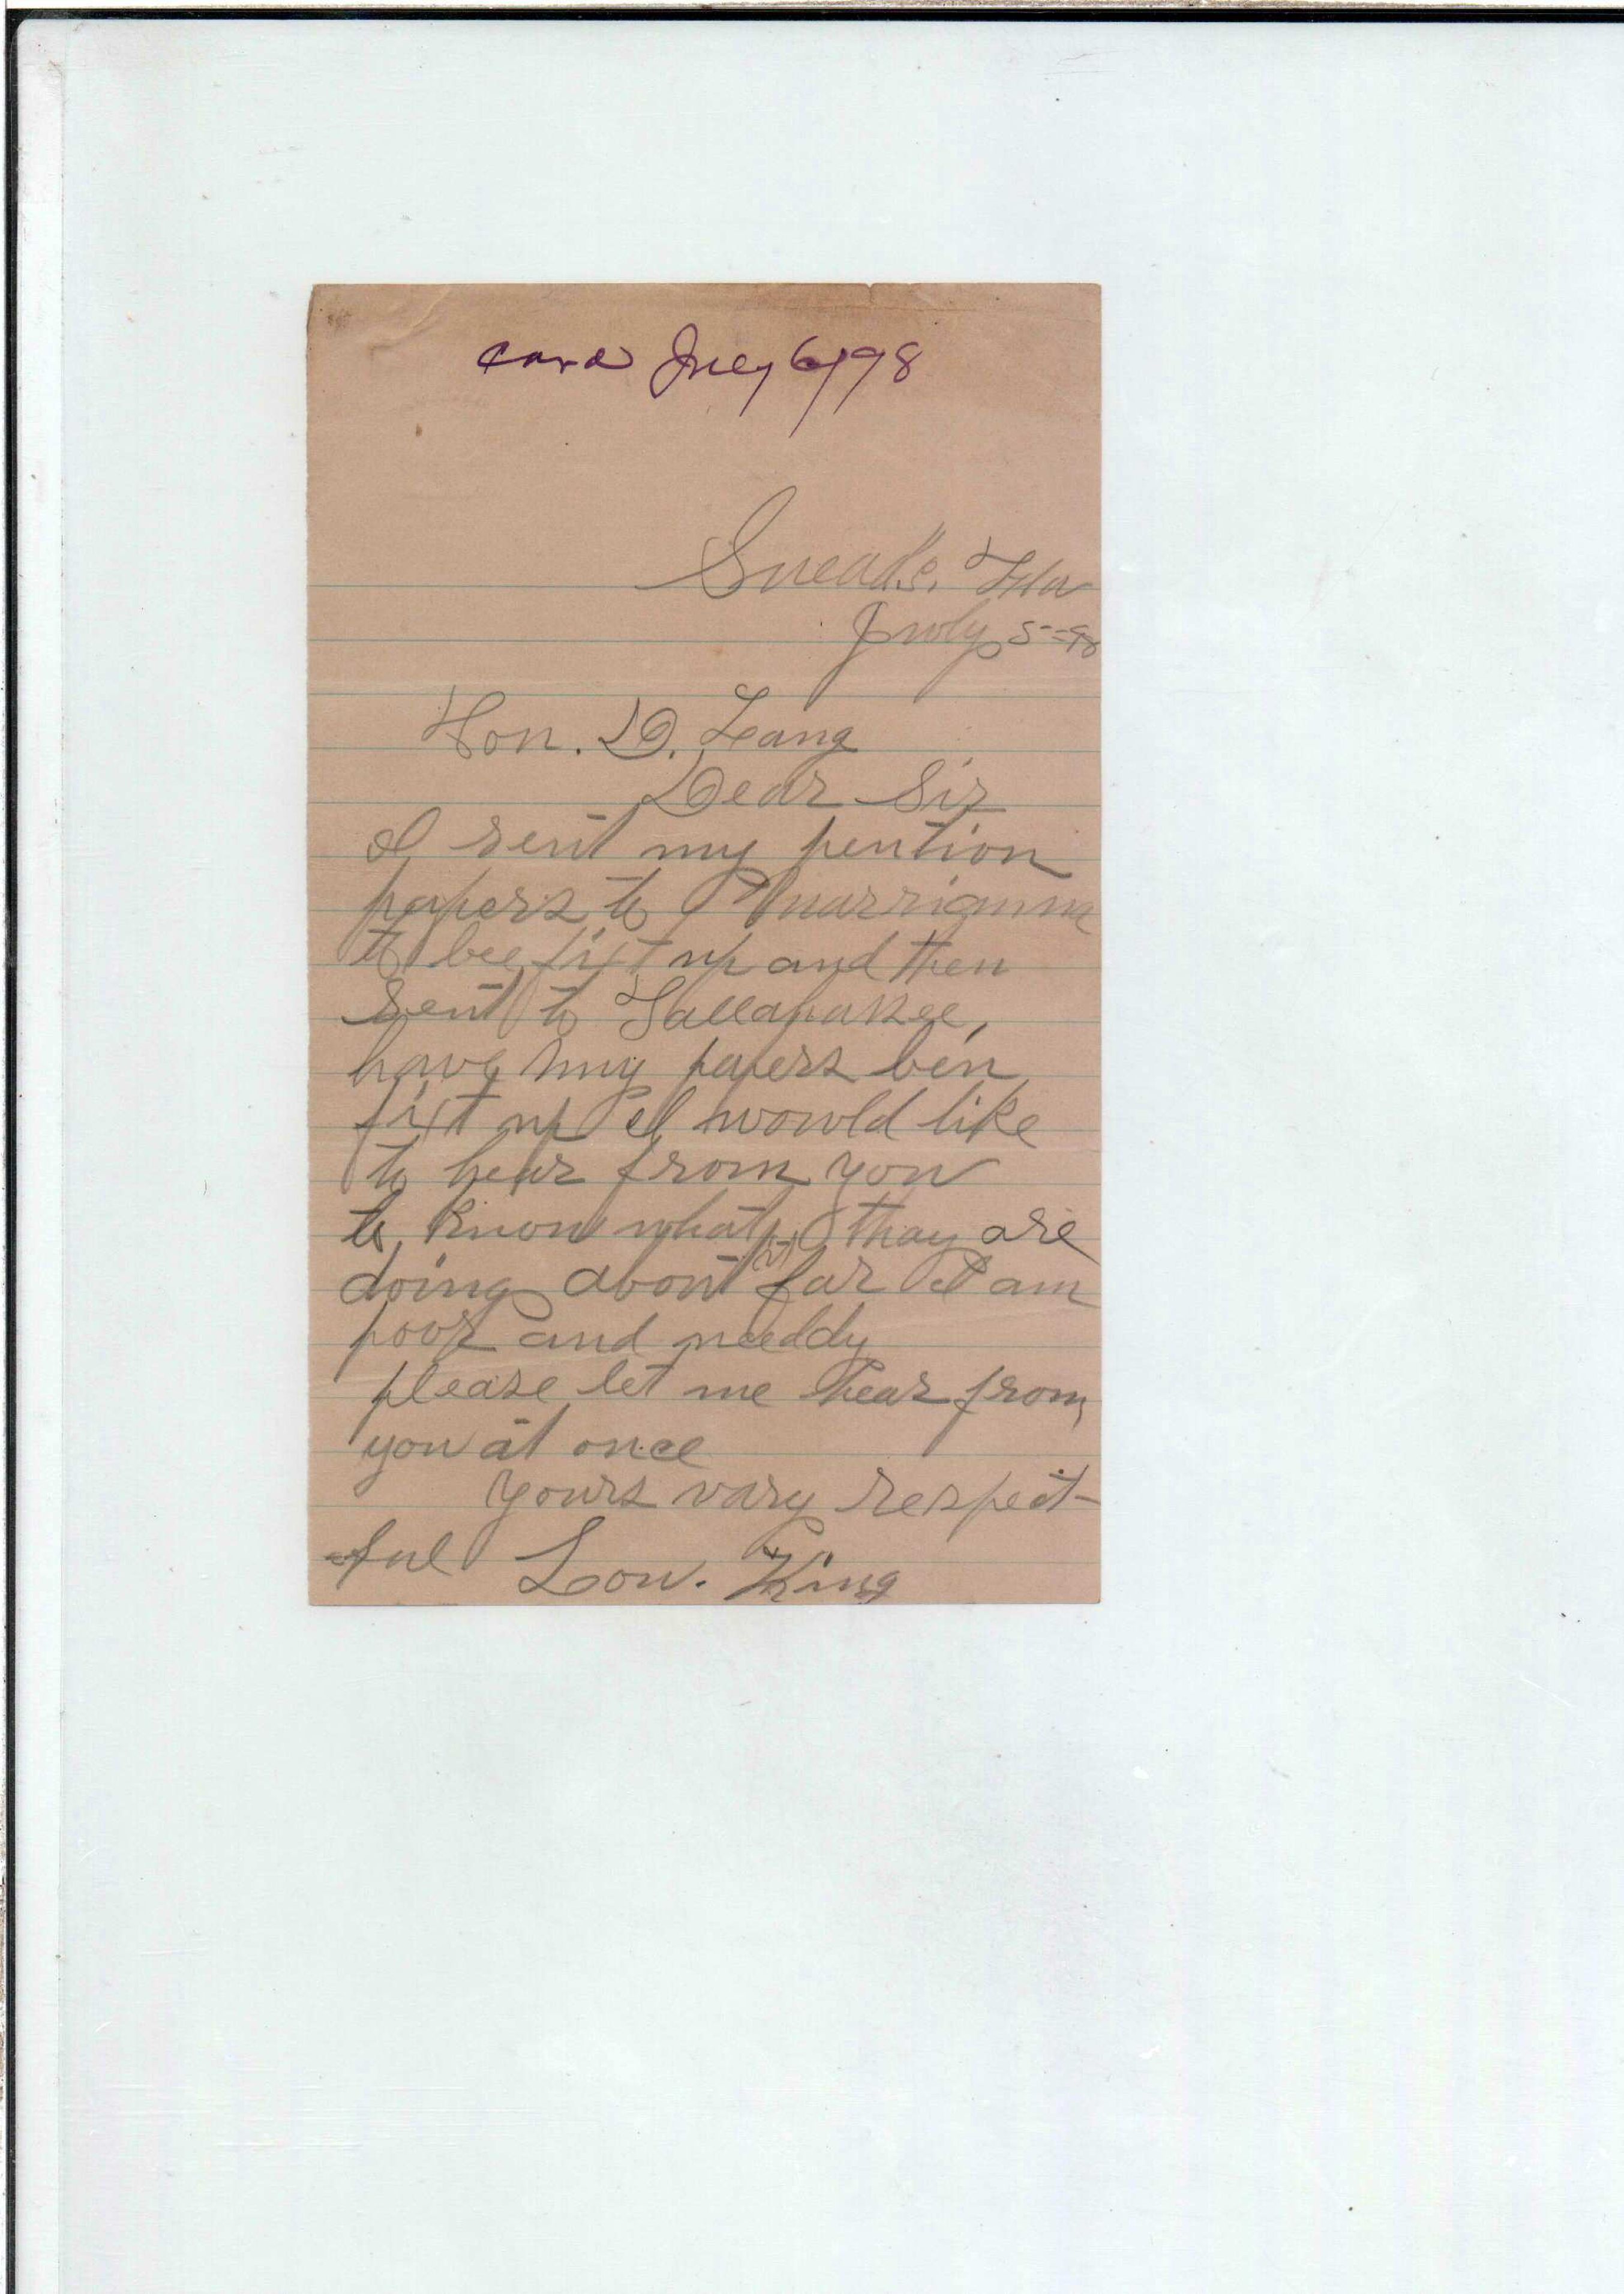 Card July 6/98
Sneads, Fla
July 5-98
Hon. D. Lang
Dear Sir
I sent my pention
papers to Marrianna
to bee fixt up and then
sent to Tallahassee,
have my papers ben
fixt up I wowld like
to hear from you
to know what thay are
doing about it far I am
poor and needdy
please let me hear from
you at once
yours vary respect-
-ful Lou. King